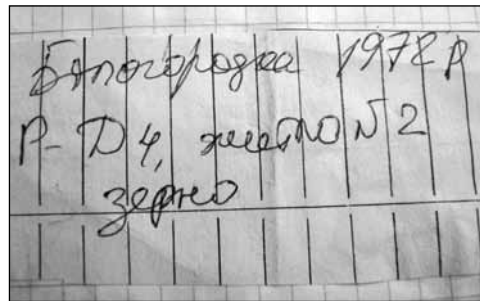 Білогородка 1972 р
Р-Д 4, житло N 2
зерно